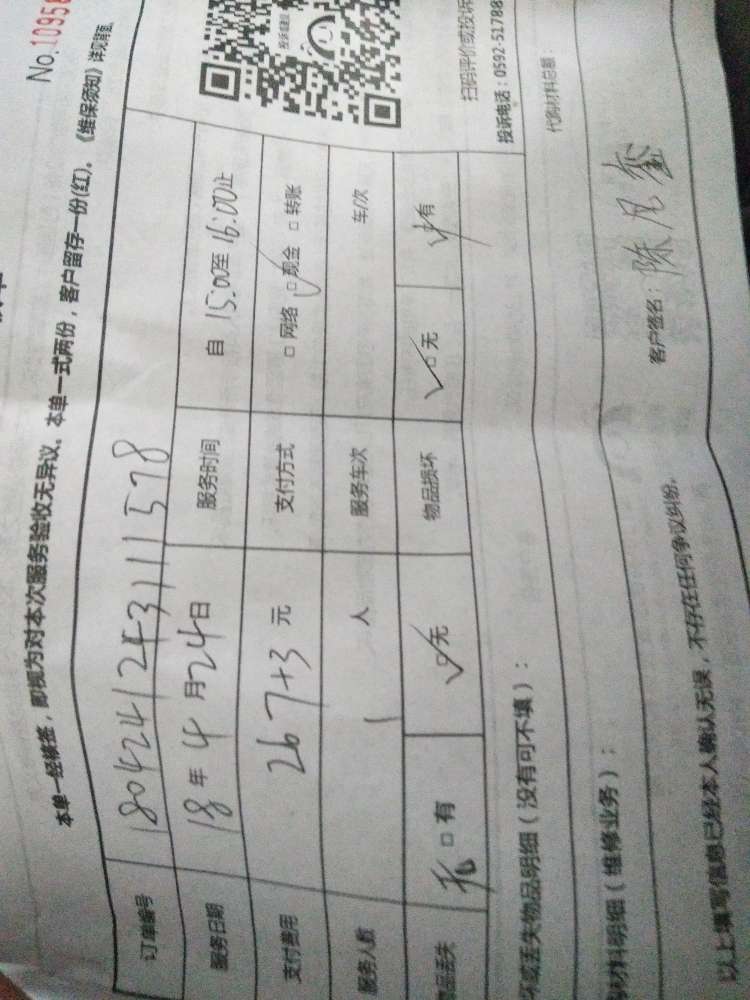 No.10958
本单一经核签，即视为对本次服务验收无异议。本单一式两份，客户留存一份(红)。《维保须知》详见背面。
订单编号
服务日期 18年4月24日 服务时间 自15:00至16:00止
支付费用 267+3元 支付方式 □网络 □现金 □转账
服务人数 1人 服务车次 车/次
物品丢失 □有 □无 物品损坏 □无 有
投诉或建议
扫码评价或投诉
投诉电话：0592-51788
坏或丢失物品明细（没有可不填）：
代购材料总额：
材料明细（维修业务）：
客户签名：陈
以上填写信息已经本人确认无误，不存在任何争议纠纷。